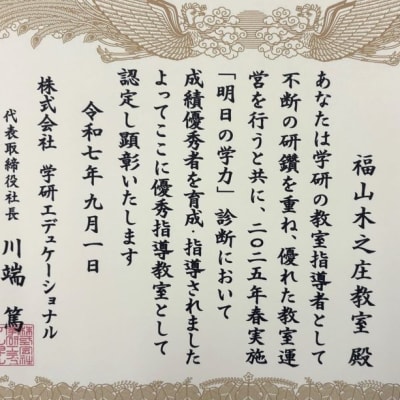 福山木之庄教室 殿
あなたは学研の教室指導者として
不断の研鑽を重ね、優れた教室運
営を行うと共に、二〇二五年春実施
「明日の学力」診断において
成績優秀者を育成・指導されました
よってここに優秀指導教室として
認定し顕彰いたします
令和七年九月一日
株式会社 学研エデュケーショナル
代表取締役社長 川端 篤